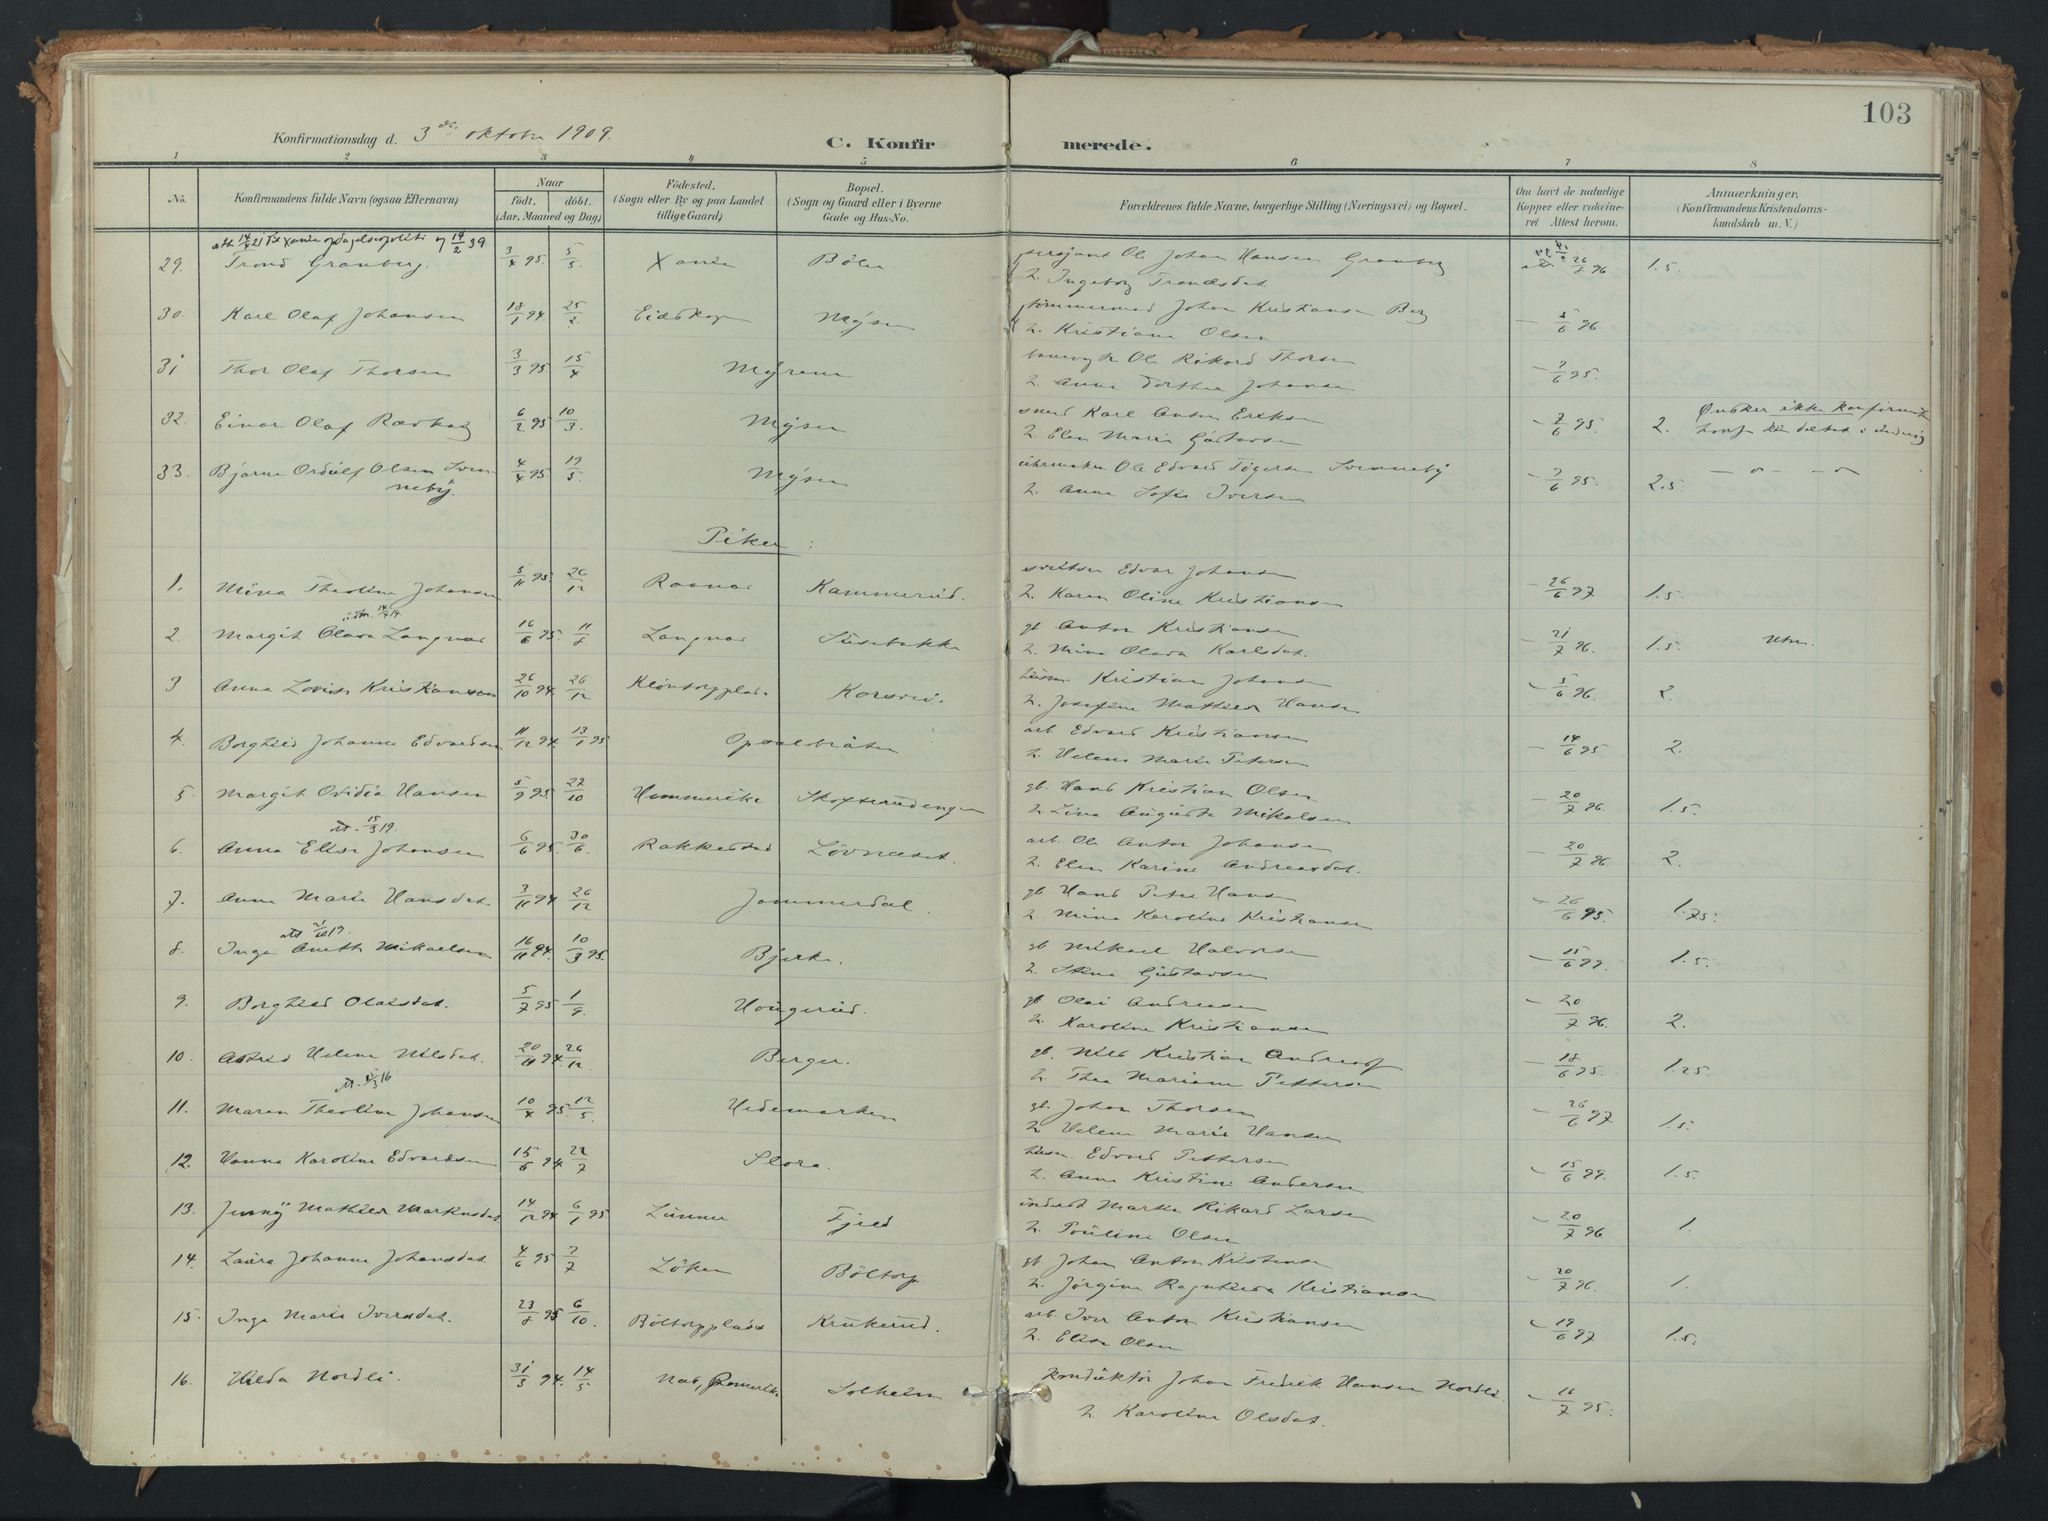 103
Konfirmationsdag d. 3 oktober 1909.
C. Konfirmerede.
1 2 3 4 5 6 7 8
No. Konfirmandens fulde Navn (ogsaa Efternavn) Naar födt. döbt. (Aar, Maaned og Dag) Födested. (Sogn eller By og paa Landet tillige Gaard) Bopæl. (Sogn og Gaard eller i Byerne Gade og Hus-No.) Forældrenes fulde Navne, borgerlige Stilling (Næringsvei) og Bopæl. Om havt de naturlige Kopper eller vaccineret Attest herom. Anmærkninger. (Konfirmandens Kristendomskundskab m. V.)
29. Trond Granberg. 3/4 95. 5/5 Xania Johan Hansen Granberg 26/7 96 1.5.
2. Ingeborg Trondsdat
30. Karl Olaf Johansen 18/1 94. 25/2 Eidskog Mysen Johan Kristiansen Berg – 5/6 96
2. Kristiane Olsen
31 Thor Olaf Thorsen 3/3 95 15/4 Myrene Ole Rikard Thorsen – 7/6 95.
2. Anna Dorthea Johansen
32. Einar Olaf Ravhaug 6/2 95 10/3 Mysen smed Karl Anton Eriksen – 7/6 95. 2. Ønsker ikke konfirmation
2. Elen Marie Gustavsen
33. Bjarne Ordulf Olsen Svenneby. 4/4 95. 19/5 Mysen uhrmaker Ole Edvard Svenneby – 7/6 95. 2.5 – o – – o –
2. Anne Sofie Iversen
Piker:
1. Mina Theoline Johansen 5/11 95. 26/12 Kammerud. Edvar Johansen – 26/6 97 1.5
2. Karen Oline Kristiansen
2. Margit Olava Langnes 16/6 95. 11/8 Langnes Susebakke gb Anton Kristiansen – 21/7 96. 1.5
2. Mina Olava Karlsdat.
3 Anna Lovise Kristiansen 26/10 94. 26/12 Korsvei. Kristian Johansen – 5/6 96 2.
2. Josefine Mathilde Hansen
4. Borghild Johanne Edvardsen 11/12 94. 13/1 95 Opsalbråten arb Edvard Kristiansen – 14/6 95 2.
2. Helene Marie Petersen
5 Margit Ovidia Hansen 5/9 95. 27/10 gb. Hans Kristian Olsen – 20/7 96. 1.5.
2. Lina Augusta Mikalsen
att. 15/3 19.
6. Anna Elise Johansen 6/6 95. 30/6 Rakkestad Lövnæset. arb. Ole Anton Johansen – 20/7 96 2.
2. Elen Karine Andreasdat.
7. Anne Marie Hansdat. 3/11 94 26/12 Jammerdal. gb Hans Peter Hansen 26/6 95. 1.75.
2 Mina Karoline Kristiansen
8. Inga Aneth Mikaelsen 16/11 94. 10/3 95. Bjerke. gb Mikael Halvorsen – 15/6 99. 1.5.
2. Stina Gustavsen
9. Borghild Olaisdat. 5/7 95 1/9 Haugerud. gb Olai Andreasen – 20/7 96. 2.
2. Karoline Kristiansen
10. Astrid Helene Nilsdat. 20/11 94. 26/12 Berger. gb. Nils Kristian – 18/6 95. 1.25
2. Thea Mariane Pettersen
11. Maren Theoline Johansen 10/4 95. 12/5 Hedemarken gb. Johan Thorsen – 26/6 97 1.5.
2 Helene Marie Hansen
12. Hanna Karoline Edvardsen 15/6 94. 22/7 Slora. Edvard Pettersen – 15/6 99. 1.5.
2. Anne Kristine Andersen
13. Jenny Mathilde Markusdat 14/12 94 6/1 95 Lunner Fjeld Rikard Larsen – 20/7 96 1.
2. Pauline Olsen
14. Laura Johanne Johansdat 4/6 95 7/7 Löken Böltorp gb Johan Anton Kristensen – 20/7 96. 1.
2. Jörgine Ragnhilda Kristiansen
15. Inga Marie Iversdat. 23/8 95 6/10. Böltorpplads Krukerud. arb. Iver Anton Kristiansen 19/6 97 1.5.
2. Elise Olsen
16. Hilda Nordli. 31/3 94. 14/5 Nes, Romerike Solheim Konduktör Johan Fredrik Hansen Nordli – 16/7 95.
2. Karoline Olsdat.